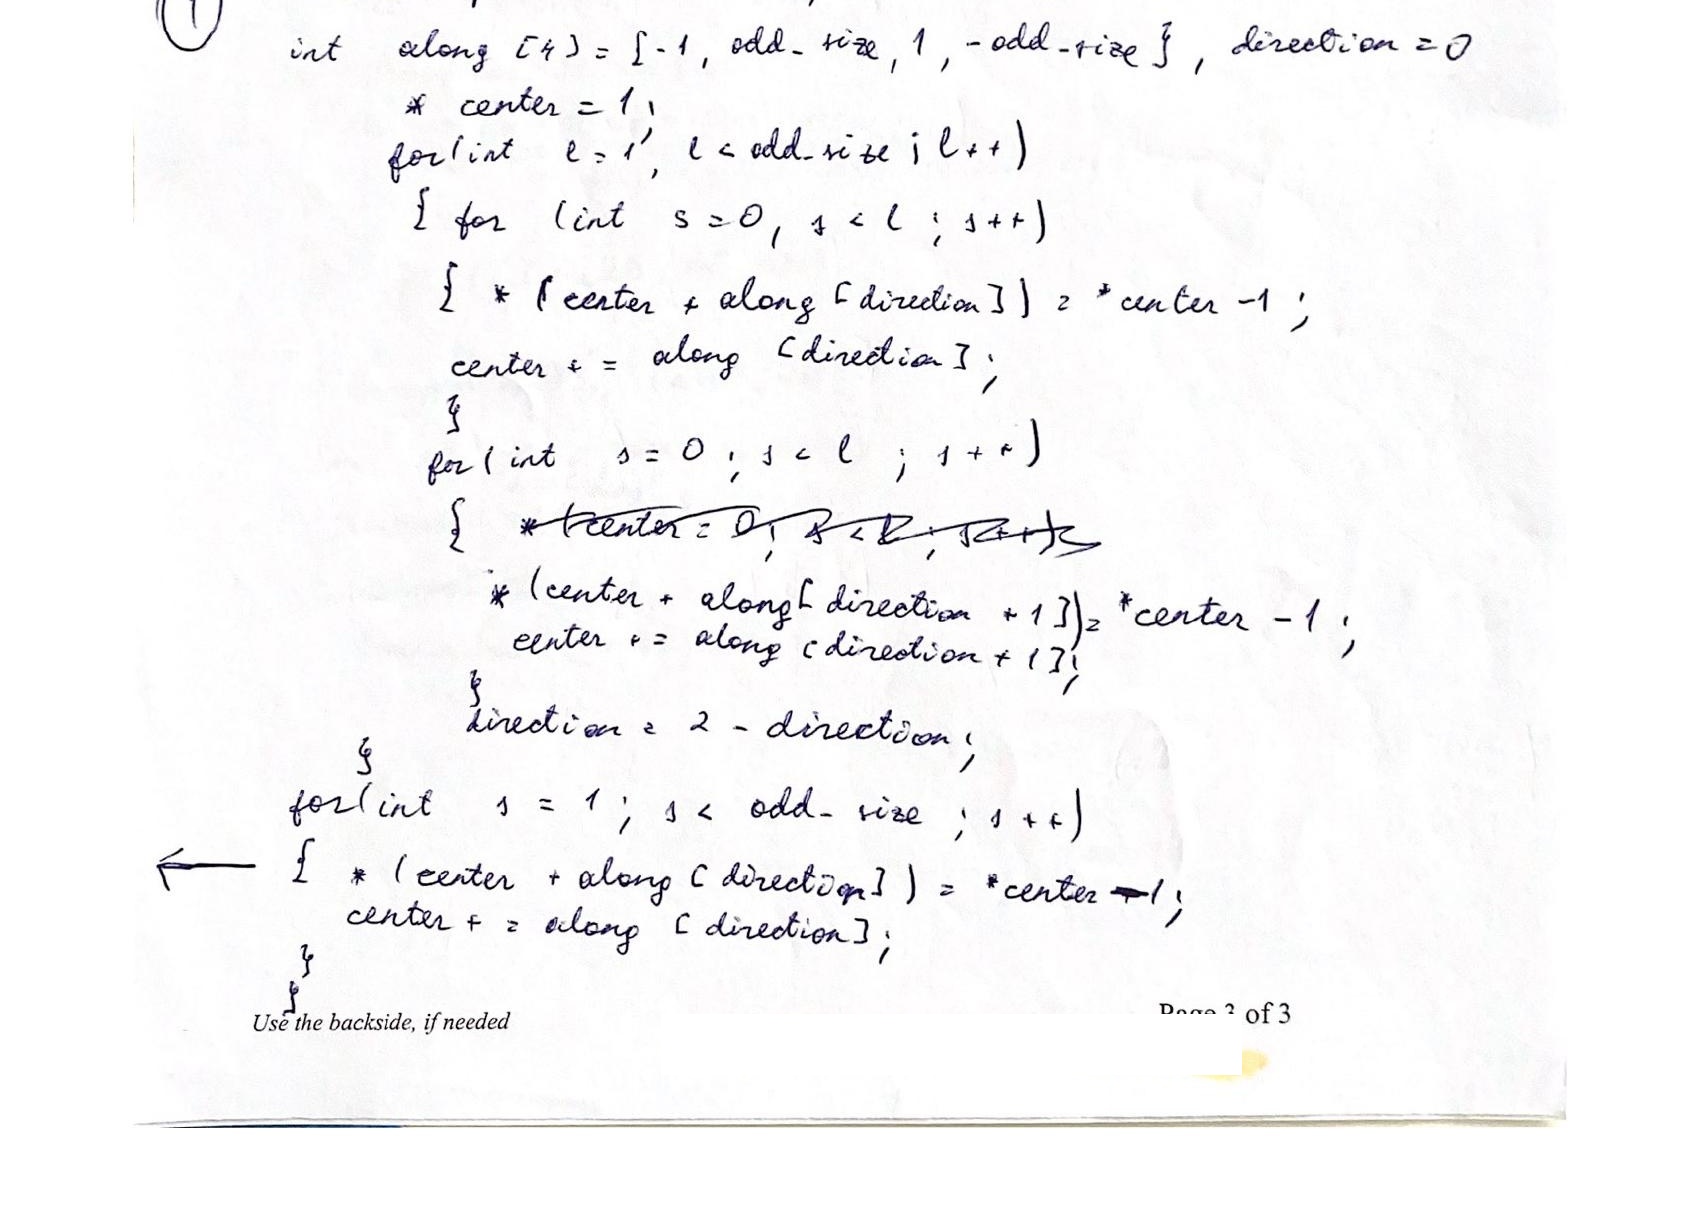 1
int along [4] = {-1, odd_size, 1, -odd_size}, direction = 0
* center = 1;
for(int l = 1, l < odd_size ; l++)
{ for (int s = 0, s < l ; s++)
{ * (center + along [direction]) = *center -1 ;
center += along [direction];
}
for(int s = 0 ; s < l ; s++)
{ *(center = 0; s < l ; s++);
*(center + along[direction +1]) = *center -1 ;
center += along [direction + 1];
}
direction = 2 - direction;
}
for(int s = 1 ; s < odd_size ; s++)
← { * (center + along [direction]) = *center -1;
center += along [direction];
}
}
Use the backside, if needed
Page 3 of 3